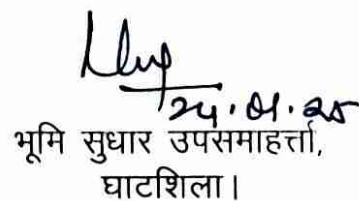 24.01.25
भूमि सुधार उपसमाहर्त्ता,
घाटशिला।